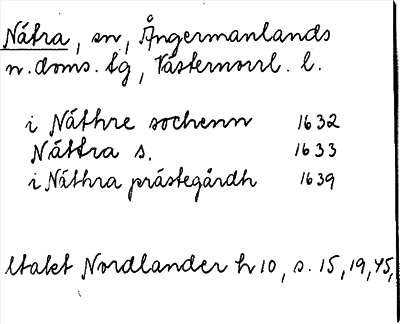 Nätra, sn, Ångermanlands
n. doms. tg, Västernorrl. l.
i Näthre sochenn 1632
Nättra s. 1633
i Näthra prästegårdh 1639
Utakt Nordlander h 10, s. 15, 19, 45,